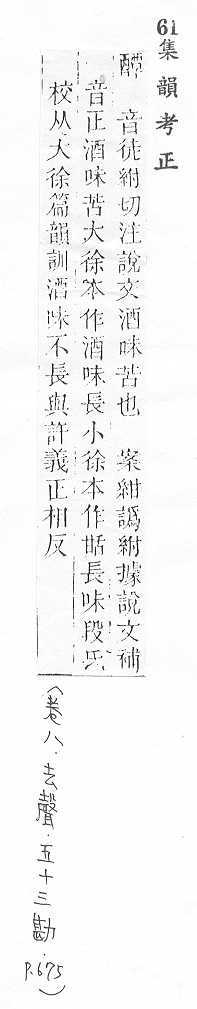 61集韻考正
醰　音徒紺切注說文酒味苦也　案紺譌紺據說文補
音正酒味苦大徐本作酒味長小徐本作甛長味段氏
校从大徐篇韻訓酒味不長與許義正相反
（卷八．去聲．五十三勘．P.675）